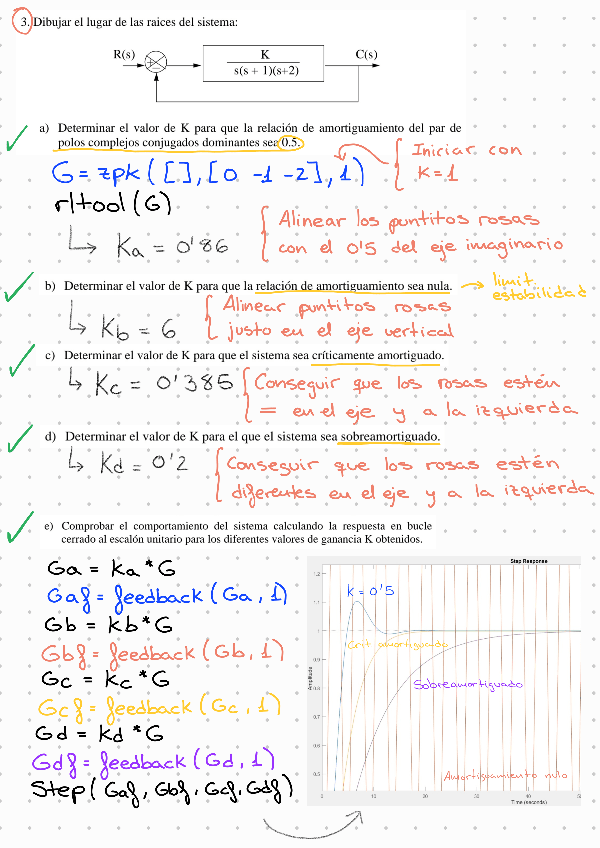 3. Dibujar el lugar de las raices del sistema:
R(s)
K
s(s + 1)(s+2)
C(s)
a) Determinar el valor de K para que la relación de amortiguamiento del par de
polos complejos conjugados dominantes sea 0.5.
G = zpk ( [], [0 -1 -2], 1)
Iniciar con
K = 1
rltool (G)
Ka = 0'86
Alinear los puntitos rosas
con el 0'5 del eje imaginario
b) Determinar el valor de K para que la relación de amortiguamiento sea nula.
limit
estabilidad
Kb = 6
Alinear puntitos rosas
justo en el eje vertical
c) Determinar el valor de K para que el sistema sea críticamente amortiguado.
Kc = 0'385
Conseguir que los rosas estén
= en el eje y a la izquierda
d) Determinar el valor de K para el que el sistema sea sobreamortiguado.
Kd = 0'2
Conseguir que los rosas estén
diferentes en el eje y a la izquierda
e) Comprobar el comportamiento del sistema calculando la respuesta en bucle
cerrado al escalón unitario para los diferentes valores de ganancia K obtenidos.
Ga = Ka * G
Gaf = feedback (Ga, 1)
Gb = Kb * G
Gbf = feedback (Gb, 1)
Gc = Kc * G
Gcf = feedback (Gc, 1)
Gd = Kd * G
Gdf = feedback (Gd, 1)
Step ( Gaf, Gbf, Gcf, Gdf)
Step Response
1.2
K = 0'5
1.1
1
Crít. amortiguado
0.9
Sobreamortiguado
0.8
Amplitude
0.7
0.6
0.5
Amortiguamiento nulo
0
10
20
30
40
50
Time (seconds)